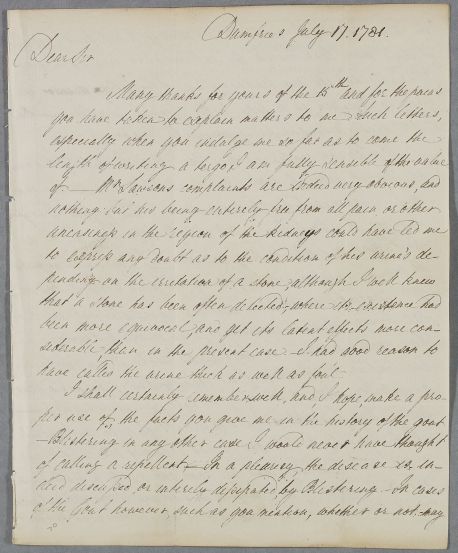 Dumfries July 17. 1781.
Dear Sir
Many thanks for yours of the 15th and for the pains
you have taken to explain matters to me. Such letters,
especially when you indulge me so far as to come the
length of writing a tergo, I am fully sensible of the value
of — Mr Lawsons complaints are indeed very obvious, and
nothing but his being entirely free from all pain or other
uneasiness in the region of the Kidneys could have led me
to express any doubt as to the condition of his urine's de-
pending on the irritation of a stone, although I well knew
that a stone has been often detected, where its existence had
been more equivocal, and yet its latent effects more con-
siderable than in the present case — I had good reason to
have called the urine thick as well as foul.
I shall certainly remember well, and I hope, make a pro-
per use of the facts you give me in the history of the gout
— Blistering in any other case I would never have thought
of calling a repellent — In a pleurisy the disease is in-
deed discussed or entirely dissipated by Blistering — In cases
of the Gout however, such as you mention, whether or not may